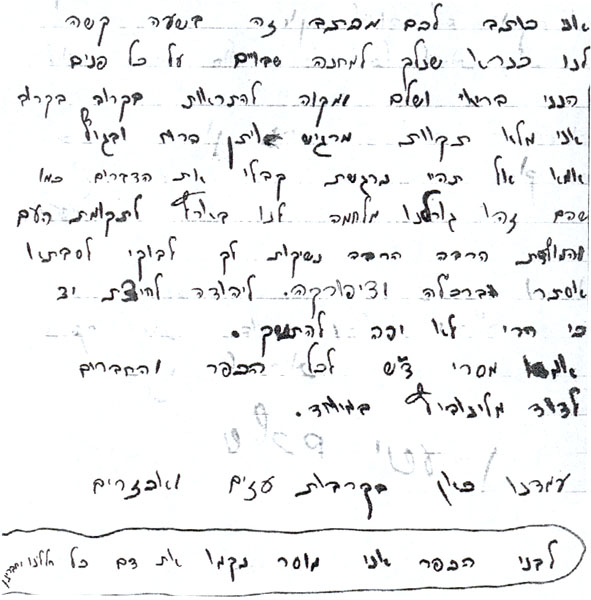 אני כותב לכם מכתב זה בשעה קשה
לנו כנראה שנלך למחנה שבויים על כל פנים
הנני בריא ושלם ומקוה להתראות בקרוב בקרוב
אני מלא תקוות מרגיש איתן ברוח ובגוף
אמא אל תהיי מרגשת קבלי את הדברים כמו
שהם זהו גורלנו מלחמה לנו בארץ לתקומת העם
והמולדת הרבה הרבה נשיקות לך לבוקי לסבתא
אסתר וברכלה וציפורקה. ליהודה לחיצת יד
כי הרי לא יפה להתנשק.
אמא מסרי ד״ש לכל הכפר והחברים
לדוד מלינוביץ במיוחד.
עמדנו כאן בקרבות עזים ואכזריים
לבני הכפר אני מוסר נקמו את דם כל חללנו